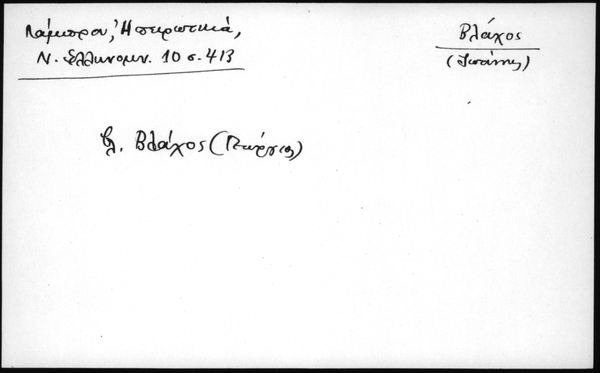 Λάμπρου, Ἠπειρωτικά,
Ν. Ἑλληνομν. 10 σ. 413
Βλάχος
(Ἰωάννης)
βλ. Βλάχος (Γεώργιος)